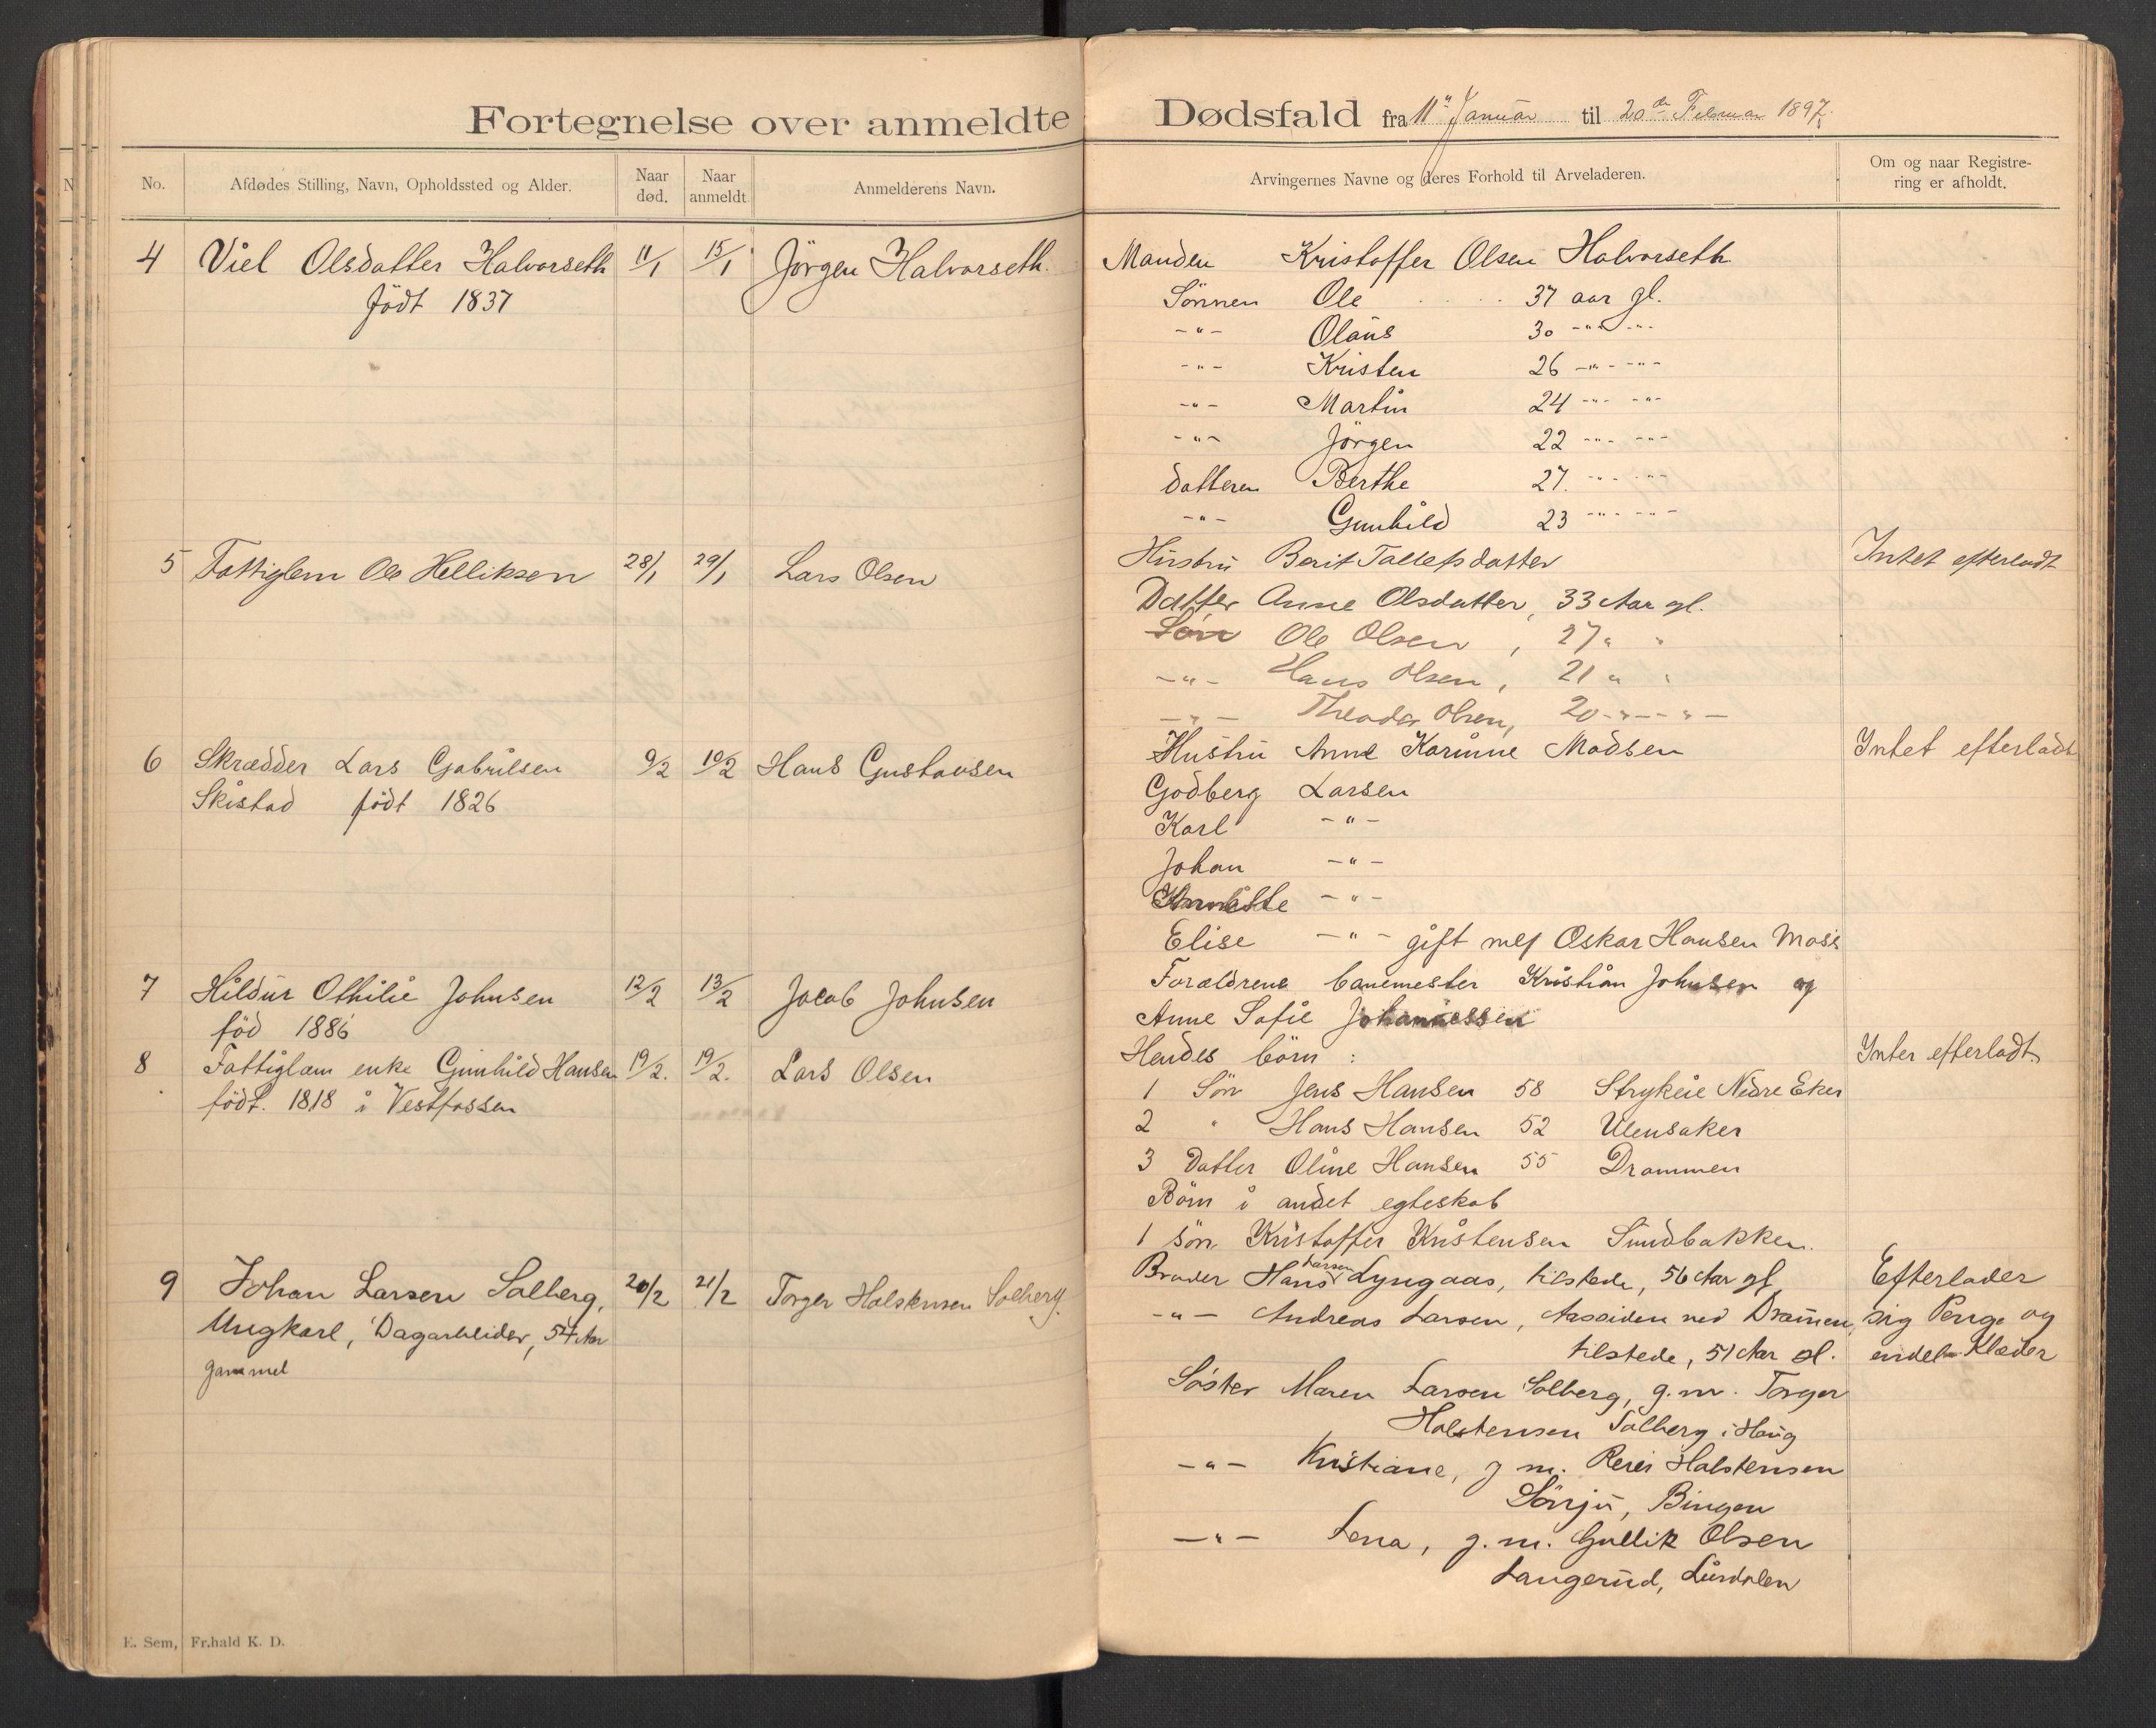 Fortegnelse over anmeldte Dødsfald fra 11te Januar til 20de Februar 1897.
No. Afdødes Stilling, Navn, Opholdssted og Alder. Naar død. Naar anmeldt Anmelderens Navn. Arvingernes Navne og deres Forhold til Arveladeren. Om og naar Registrering er afholdt.
4 Viel Olsdatter Halvorseth 11/1 15/1 Jörgen Halvorseth.
födt 1837
Manden Kristoffer Olsen Halvorseth
Sönnen Ole 37 aar gl.
-"- Olaus 30 -"- -"-
-"- Kristen 26 -"- -"-
-"- Martin 24 -"- -"-
-"- Jörgen 22 -"- -"-
datteren Berthe 27. -"- -"-
-"- Gunhild 23 -"- -"-
5 Fattiglem Ole Helliksen 28/1 29/1 Lars Olsen
Hustru Berit Tollefsdatter Intet efterladt
Datter Anne Olsdatter, 33 Aar gl.
Sön Ole Olsen, 27 " "
-"- Hans Olsen, 21 " "
-"- Theodor Olsen, 20 -"- -"-
6 Skrædder Lars Gabrilsen 9/2 10/2 Hans Gustavsen
Skistad födt 1826
Hustru Anne Karinne Madsen Intet efterladt
Godberg Larsen
Karl -"-
Johan -"-
-"-
Elise -"- gift med Oskar Hansen Moss
7 Hildur Othilie Johnsen 12/2 13/2 Jacob Johnsen
föd 1886
Forældrene banemester Kristian Johnsen og
Anne Sofie Johannessen
8 Fattiglam enke Gunhild Hansen 19/2. 19/2. Lars Olsen
födt. 1818 i Vestfossen
Hendes börn : Inter efterladt.
1 Sön Jens Hansen 58 Strykeie Nedre Eker
2 " Hans Hansen 52 Ulensaker
3 Datter Oline Hansen 55 Drammen
Börn i andet egteskab
1 sön Kristoffer Kristensen Sundbakken.
9 Johan Larsen Solberg, 20/2 21/2 Torger Halstensen Solberg.
Ungkarl, Dagarbeider, 54 Aar
gammel
Broder Hans Larsen Lyngaas, tilstede, 56 Aar gl. Efterlader
-"- Andreas Larsen, Aassiden ved Drammen, sig Penge og
tilstede, 51 Aar gl. endel Klæder
Söster Maren Larsen Solberg, g.m. Torger
Halstensen Solberg i Haug
-"- Kristiane, g m. Reier Halstensen
Sönju, Bingen
-"- Lena, g.m. Gullik Olsen
Langerud, Lurdalen
E. Sem, Fr.hald K. D.